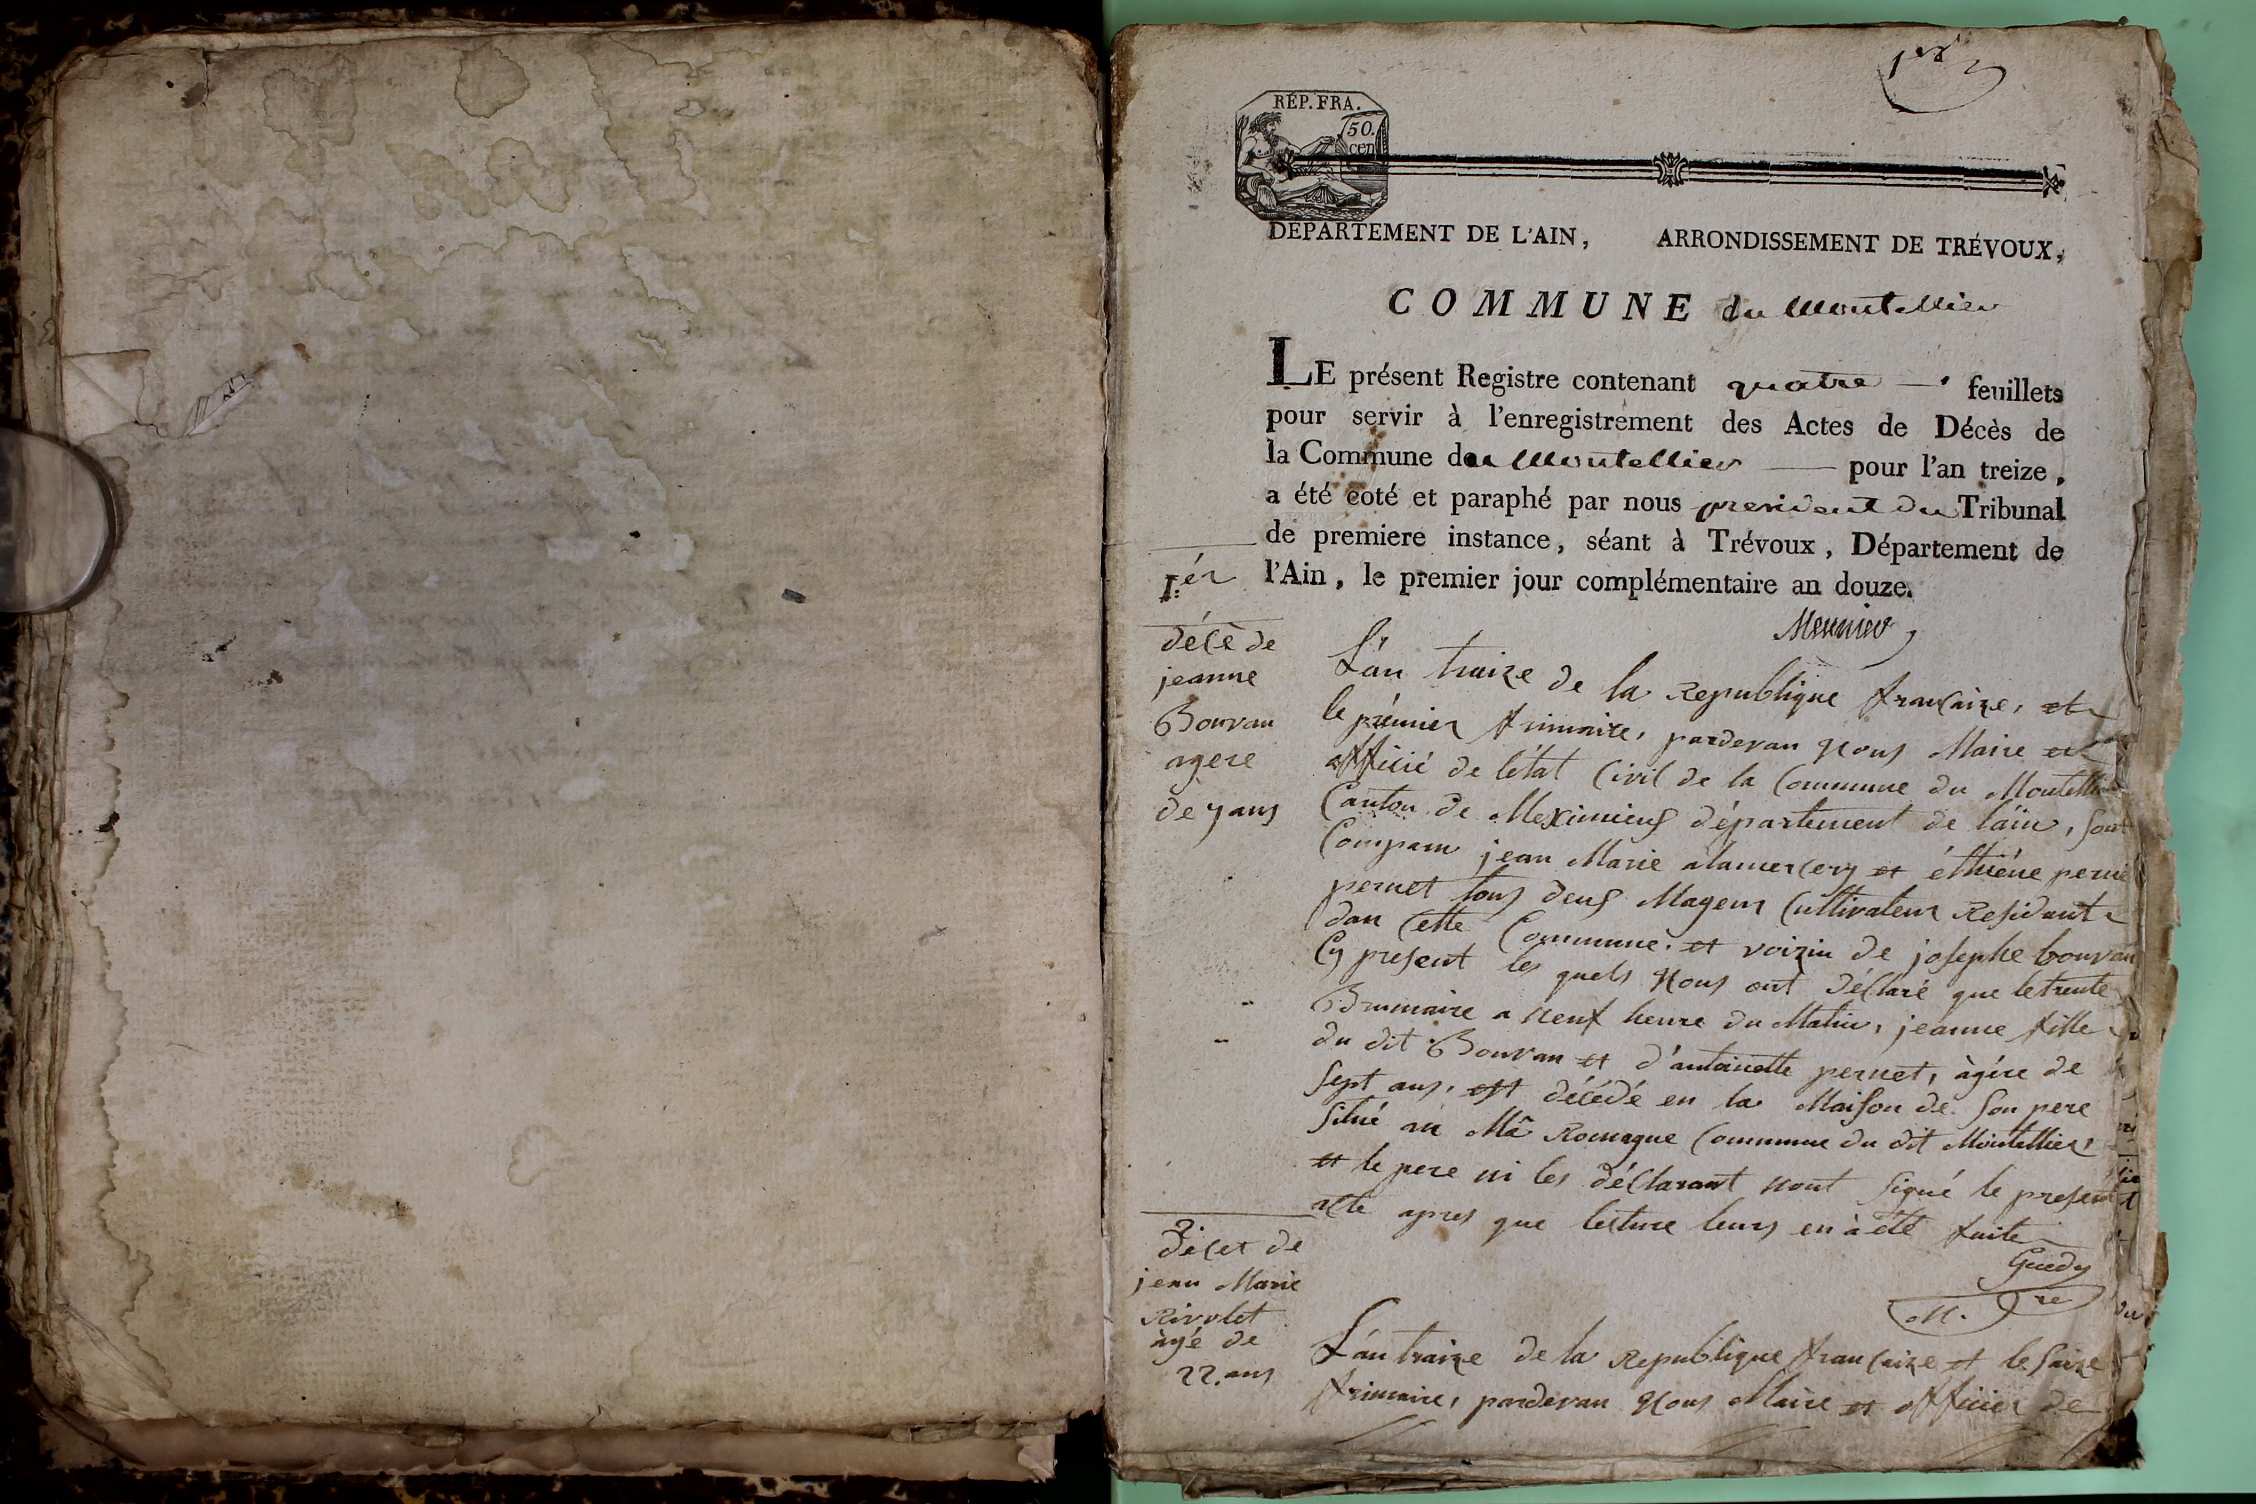 1er
RÉP. FRA.
50.
cen
DÉPARTEMENT DE L'AIN, ARRONDISSEMENT DE TRÉVOUX,
COMMUNE du Montellier
LE présent Registre contenant quatre feuillets
pour servir à l'enregistrement des Actes de Décès de
la Commune du Montellier pour l'an treize,
a été coté et paraphé par nous president du Tribunal
de premiere instance, séant à Trévoux, Département de
l'Ain, le premier jour complémentaire an douze.
Meunier
1.er
décè de
jeanne
Bouvan
agere
de 7 ans
L'an traize de la Republique francaize, et
le prémier frimaire, pardevan Nous Maire et
officié de l'état Civil de la Commune du Montellier
Canton de Meximieux département de l'ain, sont
Comparu jean Marie alamercery et éthiéne
pernet tous deux Mageur Cultivateur Residant
dan Cette Commune. et voizin de josephe bouvan
Cy present les quels Nous ont déclaré que le trente
Brumaire a neuf heure du Matin, jeanne fille
du dit Bouvan et d'antoinette pernet, àgére de
sept ans, est décédé en la Maison de son pere
situé au Mâ Romagne Commune du dit Montellier
et le pere ni les déclarant nont signé le present
acte apres que lecture leurs en à été faite
Guedy
M. re
2.
décet de
jean Marie
Rivolet
àgé de
22. ans
L'an traize de la Republique francaize et le saize
frimaire, pardevan Nous Maire et officier de